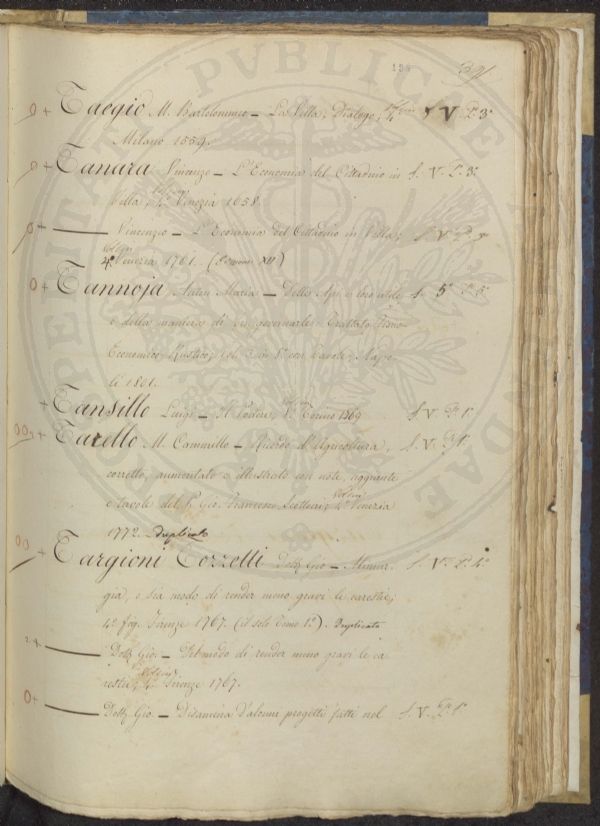 PVBLICAE
139
391
0+ Taegio M. Bartolommeo – La Villa; Dialogo, S. V. P. 3°
Milano 1559.
+ Tanara Vincenzo – L'Economia del Cittadino in S. V. P. 3°
Villa; 4° Venezia 1658
0+ Vincenzo – L'Economia del Cittadino in Villa; S. V. P. 3°
4° Venezia 1761. (Edizione XII)
0+ Tannoja Maria – Delle Api e loro utile S. 5° P. 5°
e della maniera di ben governarle; Trattato Fisico
Economico, Rustico; Vol. 3 in 8° con Tavole. Napo
li 1801.
+ Tansillo Luigi – Il Podere, 8° Torino 1769 S. V. P. 1°
00+ Tarello M. Cammillo – Ricordo d'Agricoltura, S. V. P. 1°
corretto, aumentato e illustrato con note, aggiunte
e tavole del P. Gio. Francesco Scottoni; 4° Venezia
1772. Duplicato
00 + Targioni Tozzetti Dott. Gio – Alimur S. V. P. 4°
gia, o sia modo di render meno gravi le carestie;
4° fog. Firenze 1767. (il solo Tomo 1°). Duplicato
2+ Dott. Gio. – Del modo di render meno gravi le ca
restie; 4° Firenze 1767.
0+ Dott. Gio – Disamina d'alcuni progetti fatti nel S. V. P. 1°